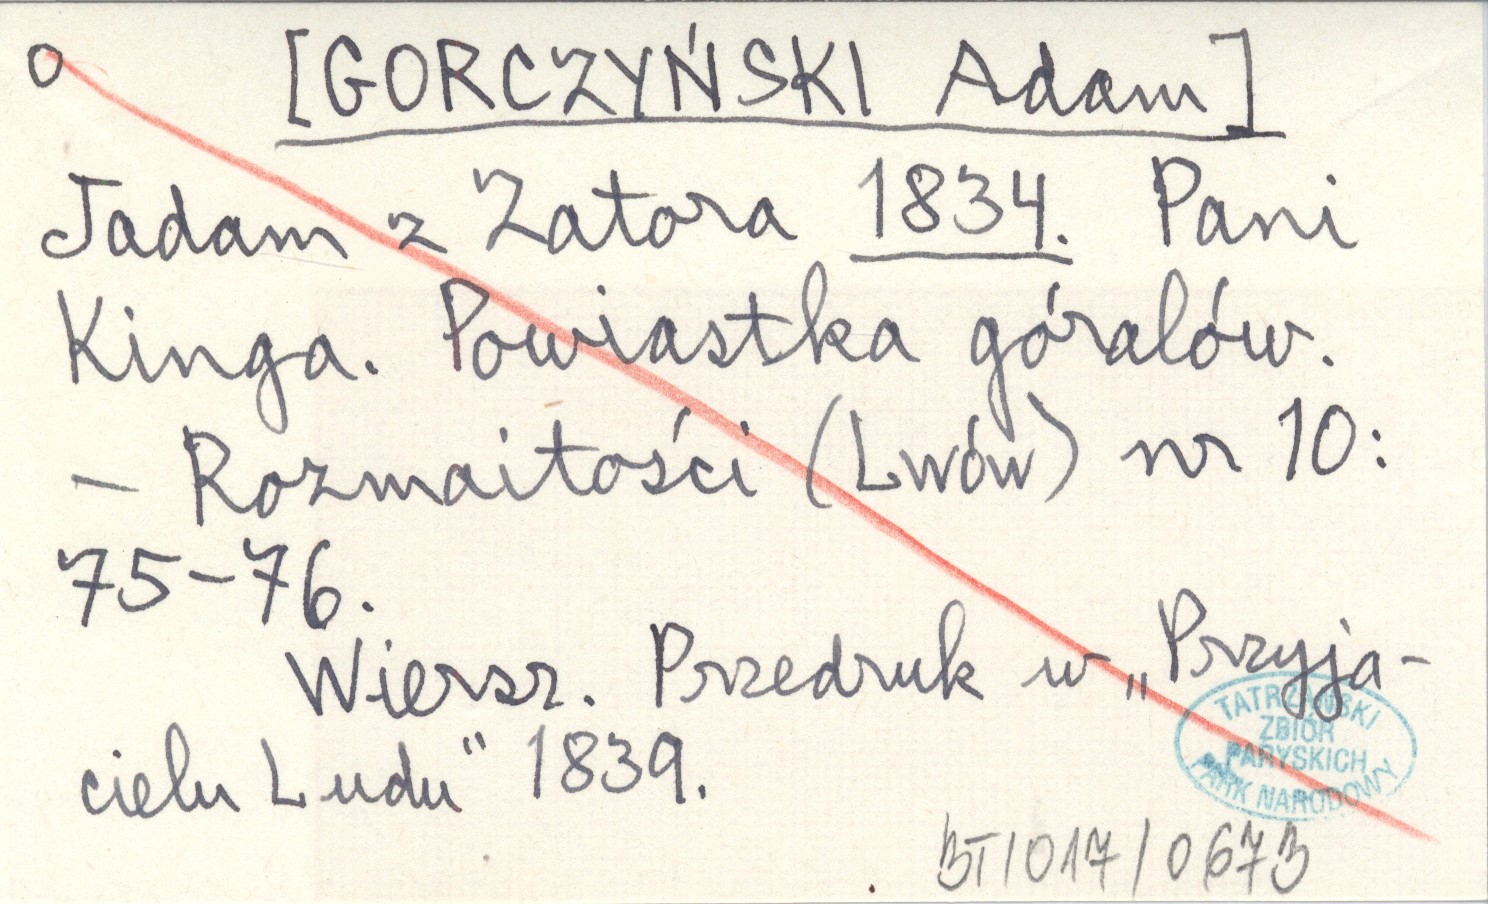 o [GORCZYŃSKI Adam]
Jadam z Zatora 1834. Pani
Kinga. Powiastka górali̇ów.
— Rozmaitości (Lwów) nr 10:
75-76.
Wiersz. Przedruk w „Przyja-
cielu Ludu" 1839.
TATRZAŃSKI
ZBIÓR
PARYSKICH
PARK NARODOWY
BT/017/0673